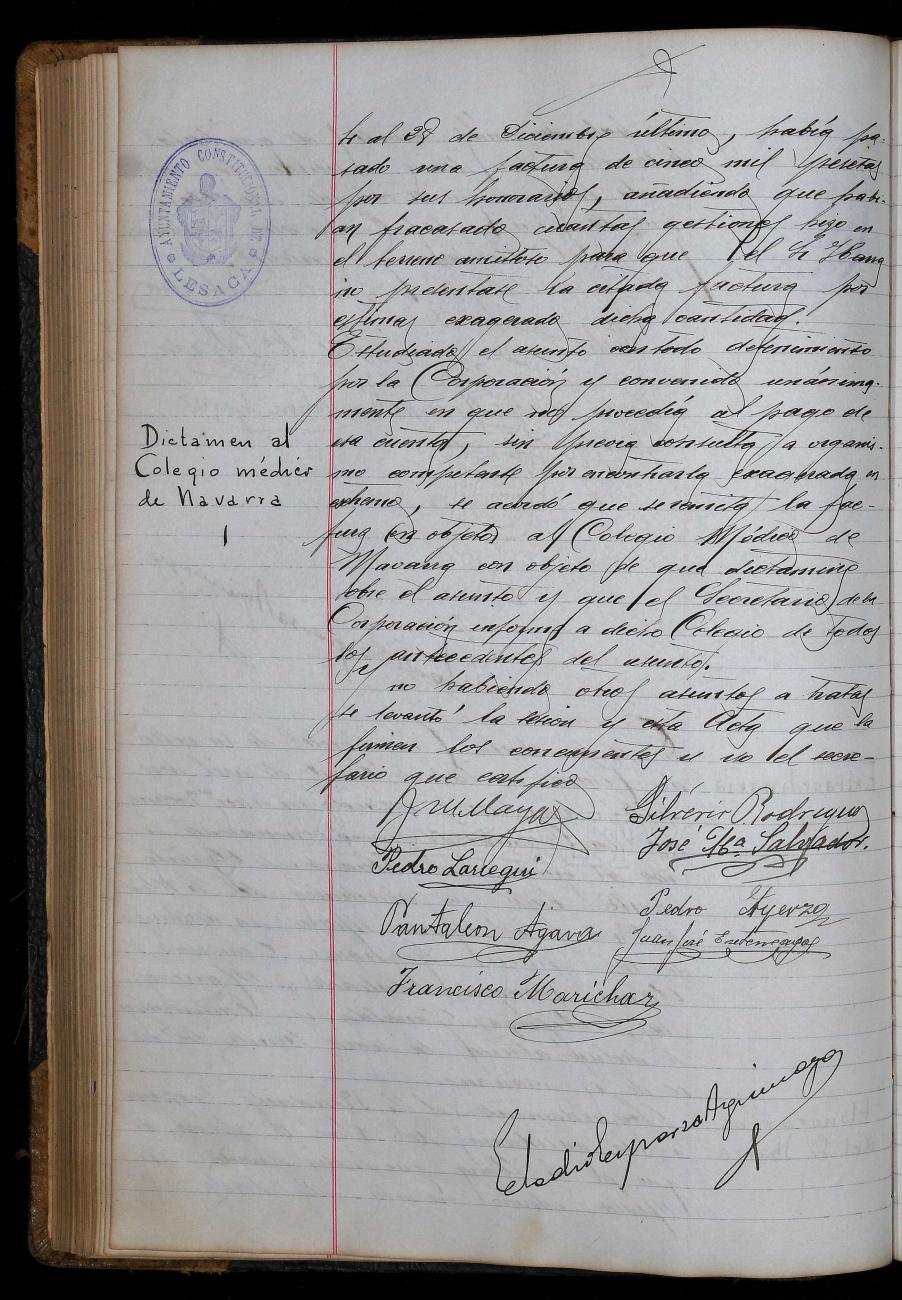 AYUNTAMIENTO CONSTITUCIONAL DE
LESACA
te al 28 de Diciembre último, había pa-
sado una factura de cinco mil pesetas
por sus honorarios, añadiendo que habi-
an fracasado cuantas gestiones hizo en
el terreno amistoso para que el Sr
no presentase la citada factura por
estimar exagerada dicha cantidad.
Estudiado el asunto con todo detenimiento
por la Corporación y convenido unánima-
mente en que no procedía al pago de
esa cuenta, sin previa consulta a organis-
mo competente por encontrarla exagerada en
extremo, se acordó que se remita la fac-
tura en objeto al Colegio Médico de
Navarra con objeto de que dictamine
sobre el asunto y que el Secretario de la
Corporación informe a dicho Colegio de todos
los antecedentes del asunto.
Y no habiendo otros asuntos a tratar
se levantó la sesión y esta Acta que la
firman los concurrentes y yo el secre-
tario que certifico
Dictamen al
Colegio médico
de Navarra
Maya
Silverio Rodriguez
José Mª Salvador.
Pedro Lariegui
Pantaleon Agara
Pedro Ayerza
Juan José
Francisco Marichar
Eladio Esparza Aguinaga